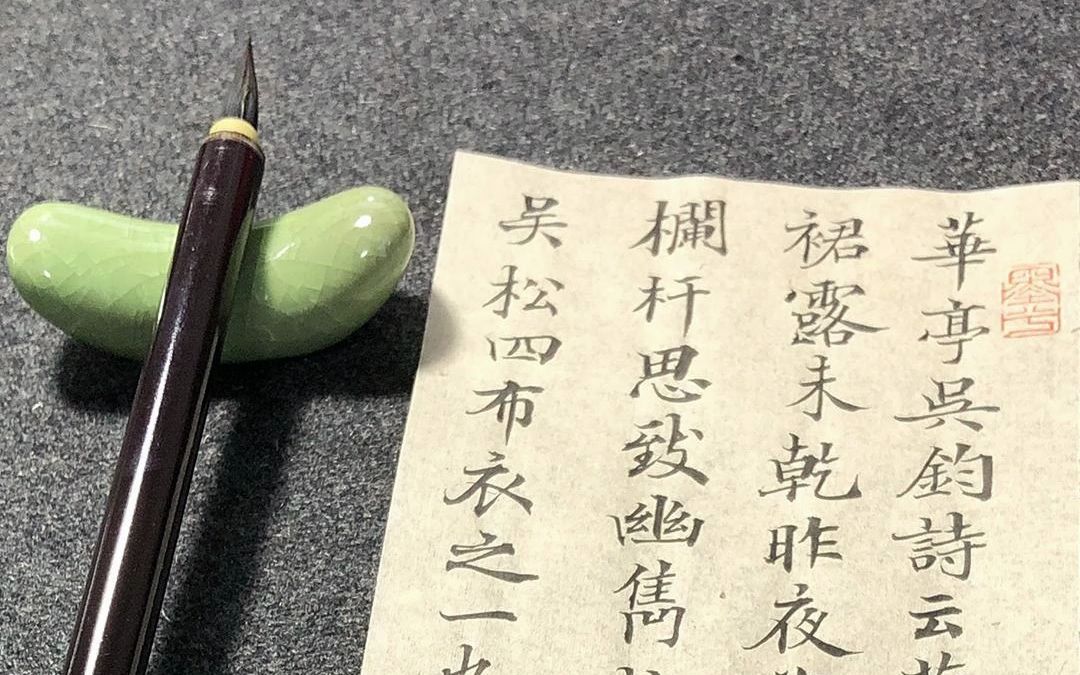 華亭吳鈞詩云
裙露未乾昨夜
欄杆思致幽雋
吴松四布衣之一